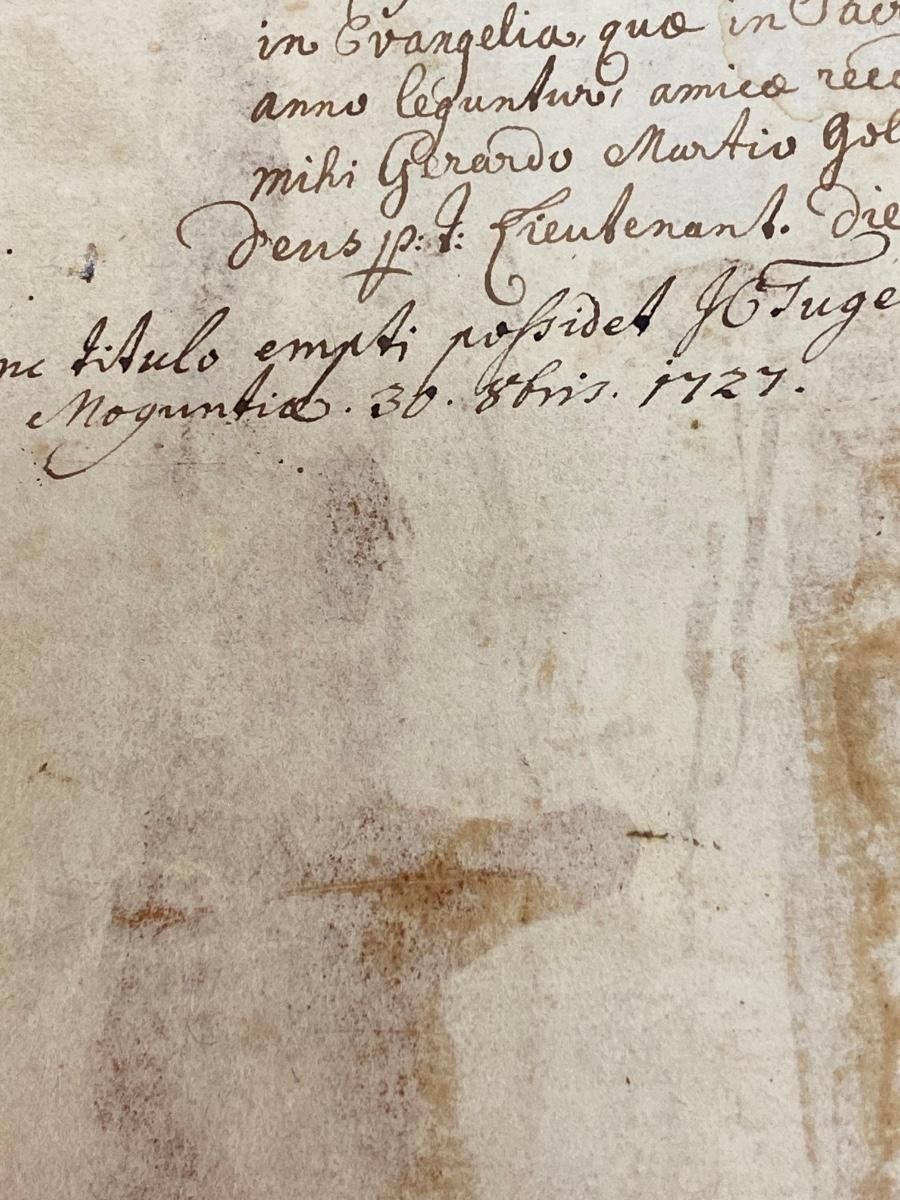 in Evangelia, quæ in Sacr
anno leguntur, amicæ rec
mihi Gerardo Martio Gol
Deus p: t: Lieutenant. Die
nc titulo empti possidet JC Fuge
Moguntiæ. 30. 8bris. 1727.